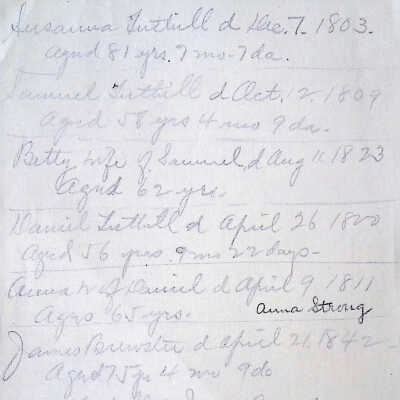 Susanna Tuthill d Dec. 7. 1803.
aged 81 yrs. 9 mo - 7 da.
Samuel Tuthill d Oct. 12. 1809
aged 58 yrs 4 mo 9 da.
Betty wife of Samuel, d Aug 11, 1823
Aged 62 yrs.
Daniel Tuthill d April 26 1820
Aged 56 yrs 9 mo 22 days -
Anna w of Daniel d April 9 1811
Ages 65 yrs.
Anna Strong
James Brewster d April 21. 1842 -
Aged 75 yr 4 mo 9 da